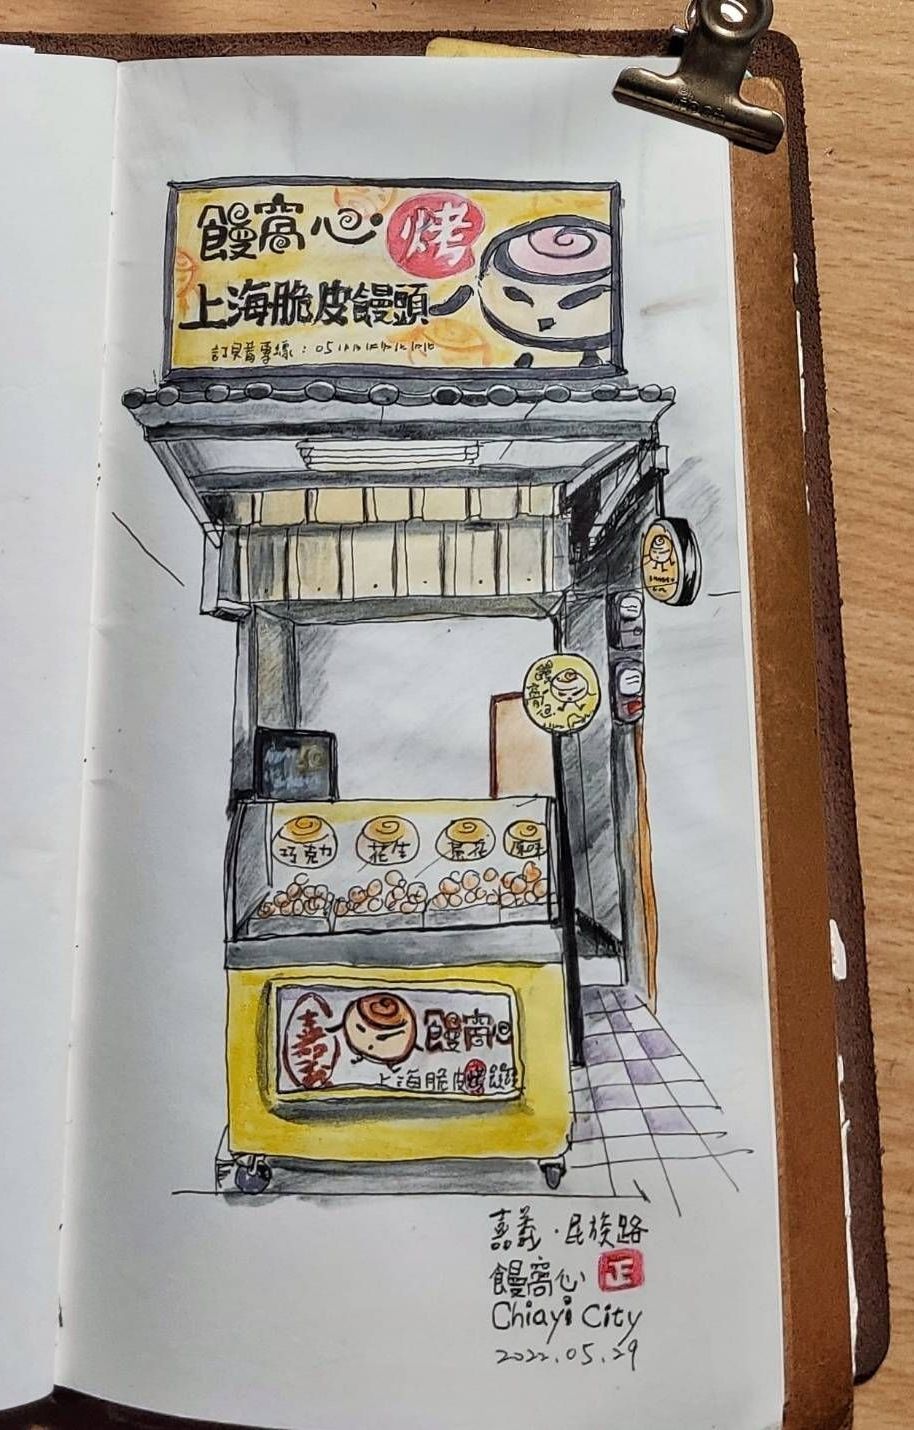 饅窩心 烤
上海脆皮饅頭
訂貨專線:05
饅窩心
巧克力 花生 原味
嘉義 饅窩心
上海脆皮烤饅頭
嘉義·民族路
饅窩心 正
Chiayi City
2022.05.29